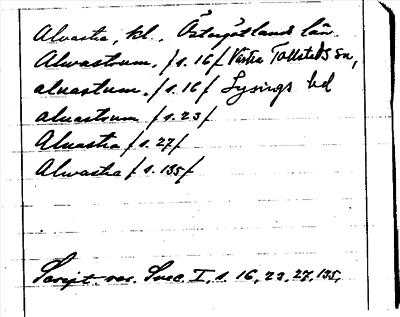 Alvastra, kl., Östergötlands län.
Alwastrum, /s. 16/ Västra Tollstads sn,
alvastum. /s. 16/ Lysings hd
alvastrum /s. 23/
Alvastra /s. 27/
Alwastra /s. 135/
Script. rer. Svec. I, s. 16, 23, 27, 135,